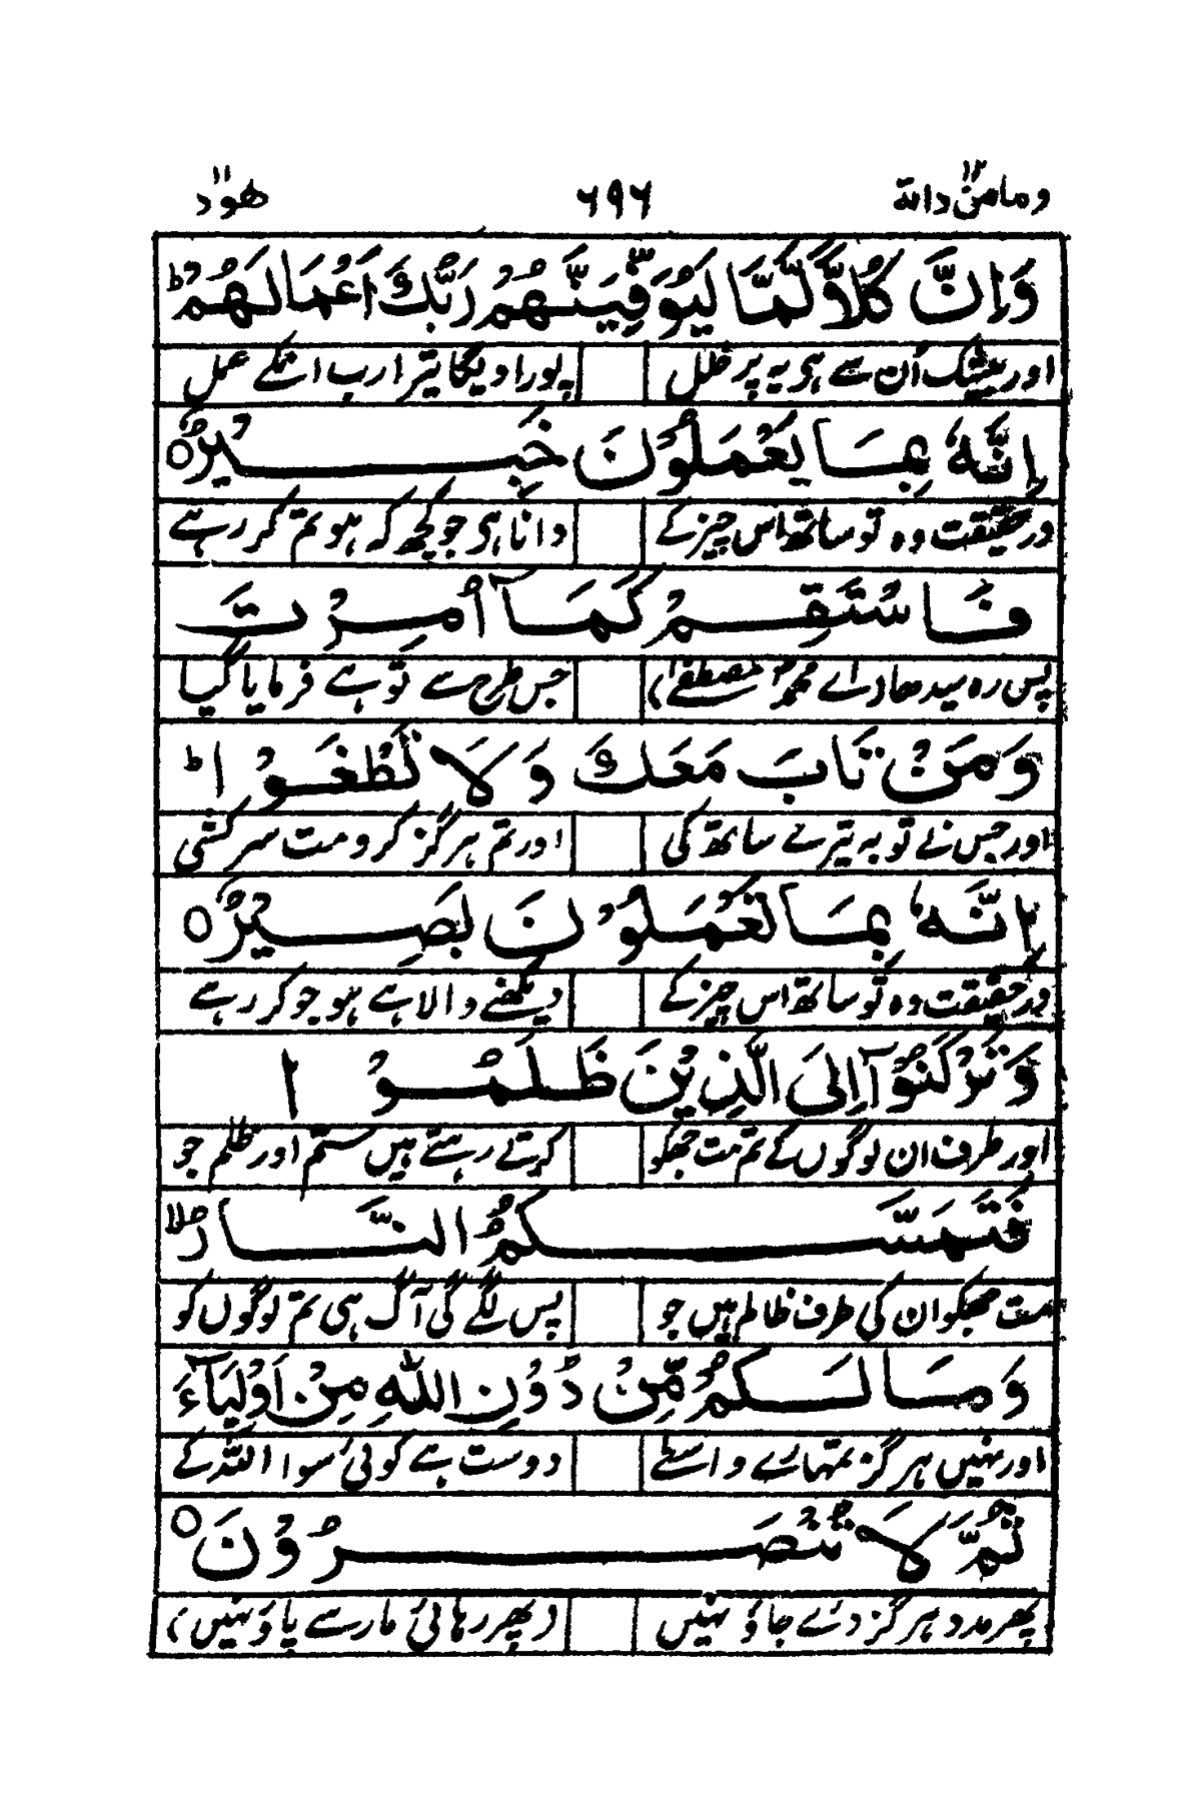 ومامن دابة ۱۲ ۶۹۶ هود ۱۱
وَاِنَّ كُلًّا لَّمَّا لَيُوَفِّيَنَّهُمْ رَبُّكَ اَعْمَالَهُمْ ؕ
اور بیشک اُن سے ہی یہ پر خلل پورا دیگا تیرا رب انکے عمل
اِنَّهٗ بِمَا يَعْمَلُوْنَ خَبِيْرٌ ○
در حقیقت وہ تو ساتھ اس چیز کے دانا ہی جو کچھ کہ ہو تم کر رہے
فَاسْتَقِمْ كَمَآ اُمِرْتَ
پس رہ سیدھا د اے محمدؐ مصطفےٰ) جس طرح سے تو ہے فرمایا گیا
وَمَنْ تَابَ مَعَكَ وَلَا تَطْغَوْا ؕ
اور جس نے توبہ تیرے ساتھ کی اور تم ہرگز کرو مت سرکشی
اِنَّهٗ بِمَا تَعْمَلُوْنَ بَصِيْرٌ ○
در حقیقت وہ تو ساتھ اس چیز کے دیکھنے والا ہے ہو جو کر رہے
وَ تَرْكَنُوْٓا اِلَى الَّذِيْنَ ظَلَمُوْا
اور طرف ان لوگوں کے تم مت جھکو کرتے رہتے ہیں ستم اور ظلم جو
فَتَمَسَّكُمُ النَّارُ ۙ
مت جھکو ان کی طرف ظالم ہیں جو پس لگے گی آگ ہی تم لوگوں کو
وَمَا لَكُمْ مِّنْ دُوْنِ اللّٰهِ مِنْ اَوْلِيَآءَ
اور نہیں ہرگز تمہارے واسطے دوست ہے کوئی سوا اللہ کے
ثُمَّ لَا تُنْصَرُوْنَ ○
پھر مدد ہرگز دئے جاؤ نہیں (پھر رہائی مار سے پاؤ نہیں)